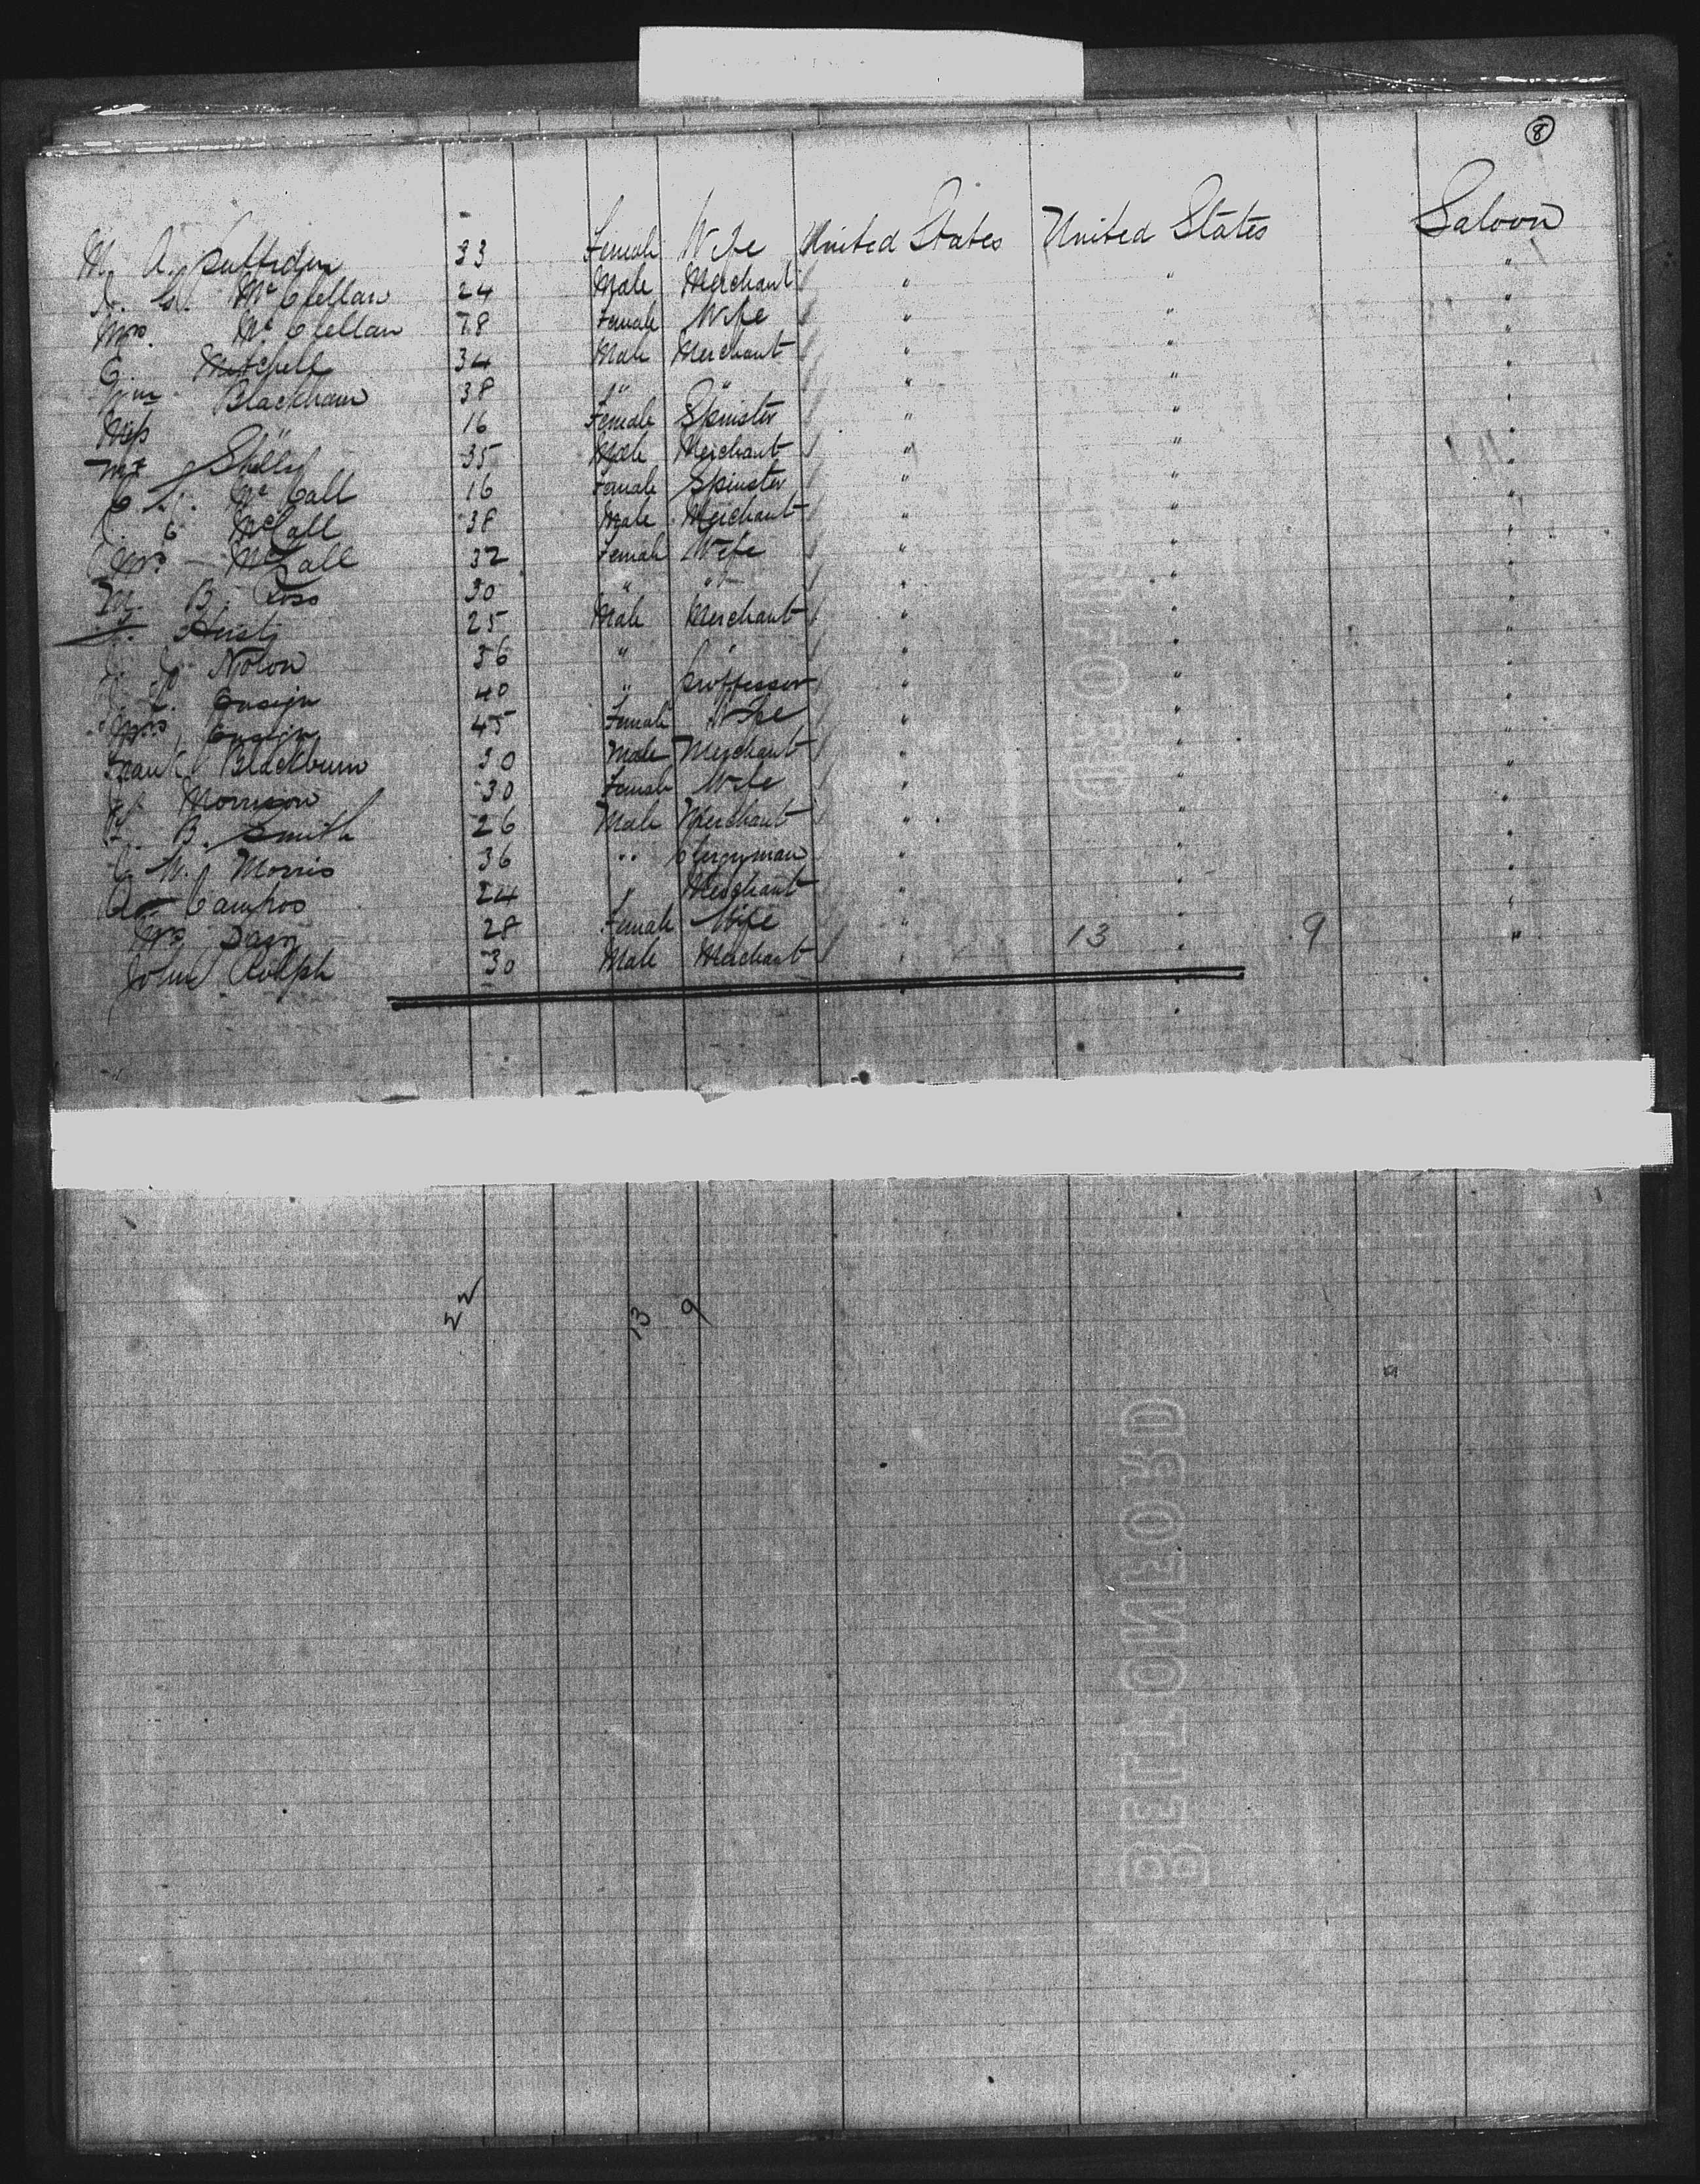 8
M. A. 33 Female Wife United States United States Saloon
Mc Clellan 24 Male Merchant " " "
Mrs. Mc Clellan 28 Female Wife " " "
E. Mitchell 34 Male Merchant " " "
Wm Blackham 38 " " " " "
Miss " 16 Female Spinster " " "
Mr J Skelly 35 Male Merchant " " "
Mc Call 16 Female Spinster " " "
E McCall 38 Male Merchant " " "
Mrs McCall 32 Female Wife " " "
B. Ross 30 " " " " "
25 Male Merchant " " "
Nolon 36 " " " " "
Ensign 40 " Proffessor " " "
Mrs Ensign 45 Female Wife " " "
Frank Blackburn 30 Male Merchant " " "
Morrison 30 Female Wife " " "
B. Smith 26 Male Merchant " " "
C. W. Morris 36 " Clergyman " " "
Campos 24 " Merchant " " "
Mrs 28 Female Wife " " "
John Rolph 30 Male Merchant " 13 " 9 "
22 13 9
BETTONFORD